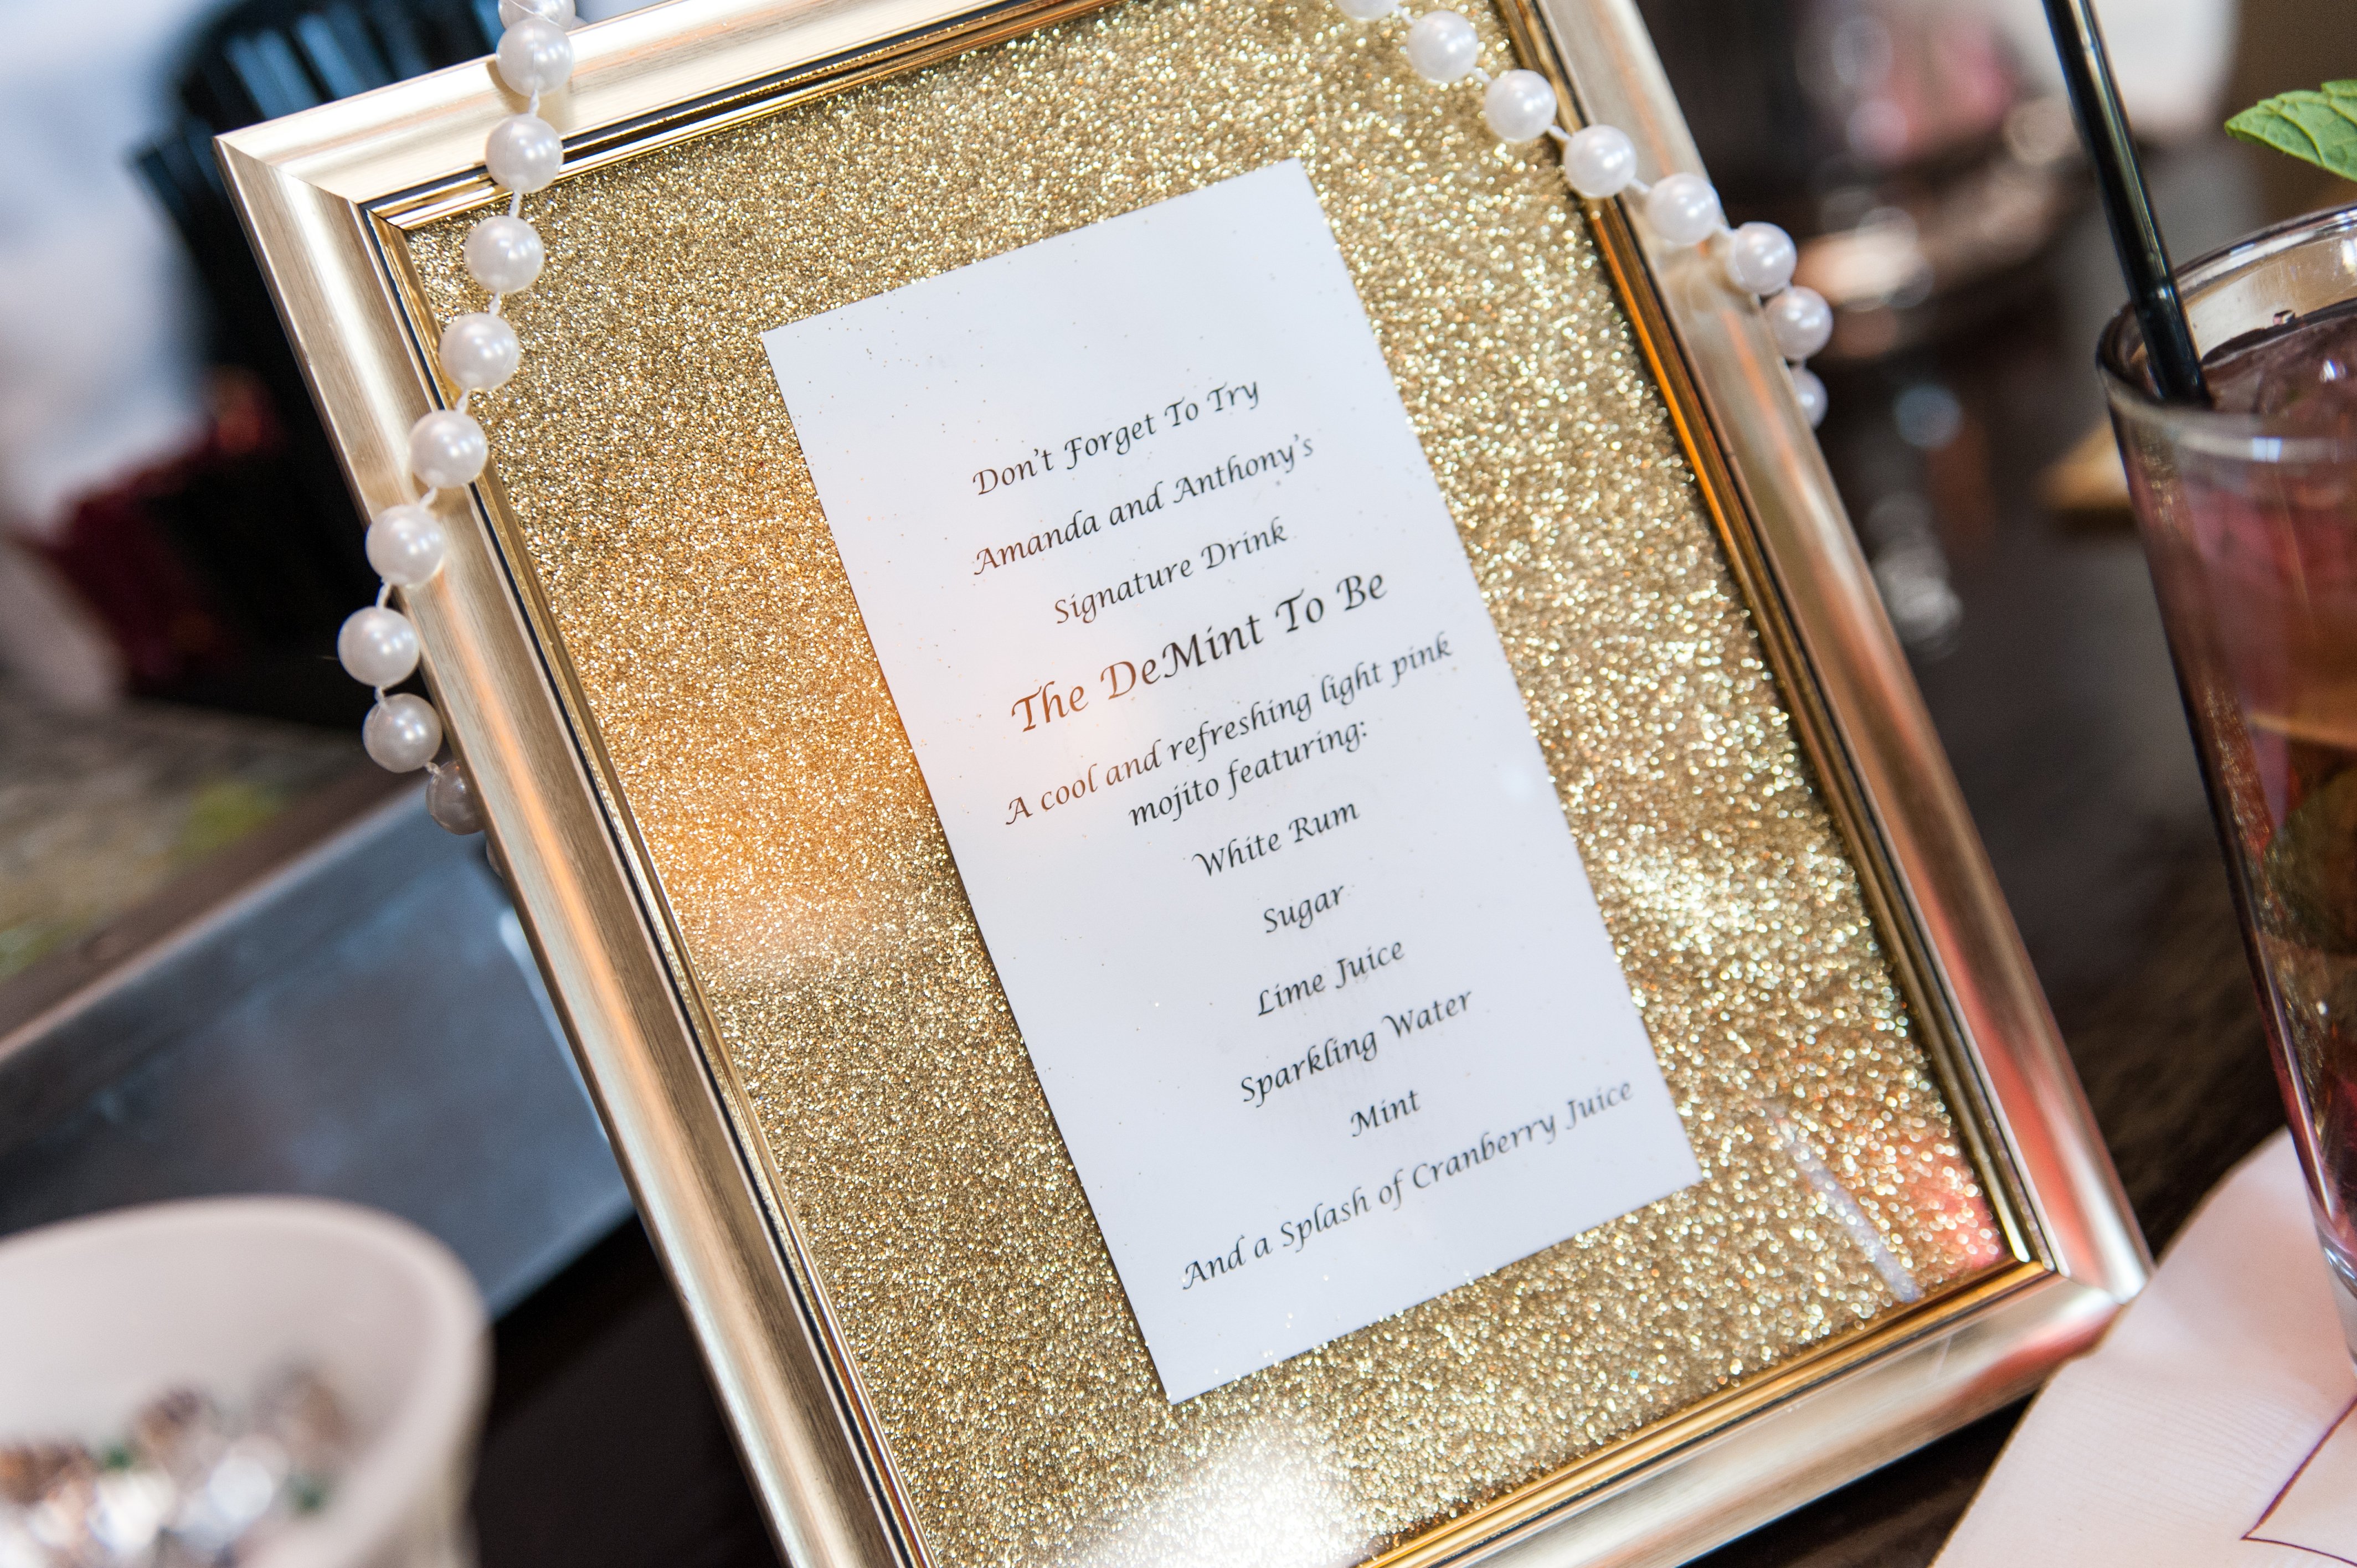 Don't Forget To Try
Amanda and Anthony's
Signature Drink
The DeMint To Be
A cool and refreshing light pink
mojito featuring:
White Rum
Sugar
Lime Juice
Sparkling Water
Mint
And a Splash of Cranberry Juice